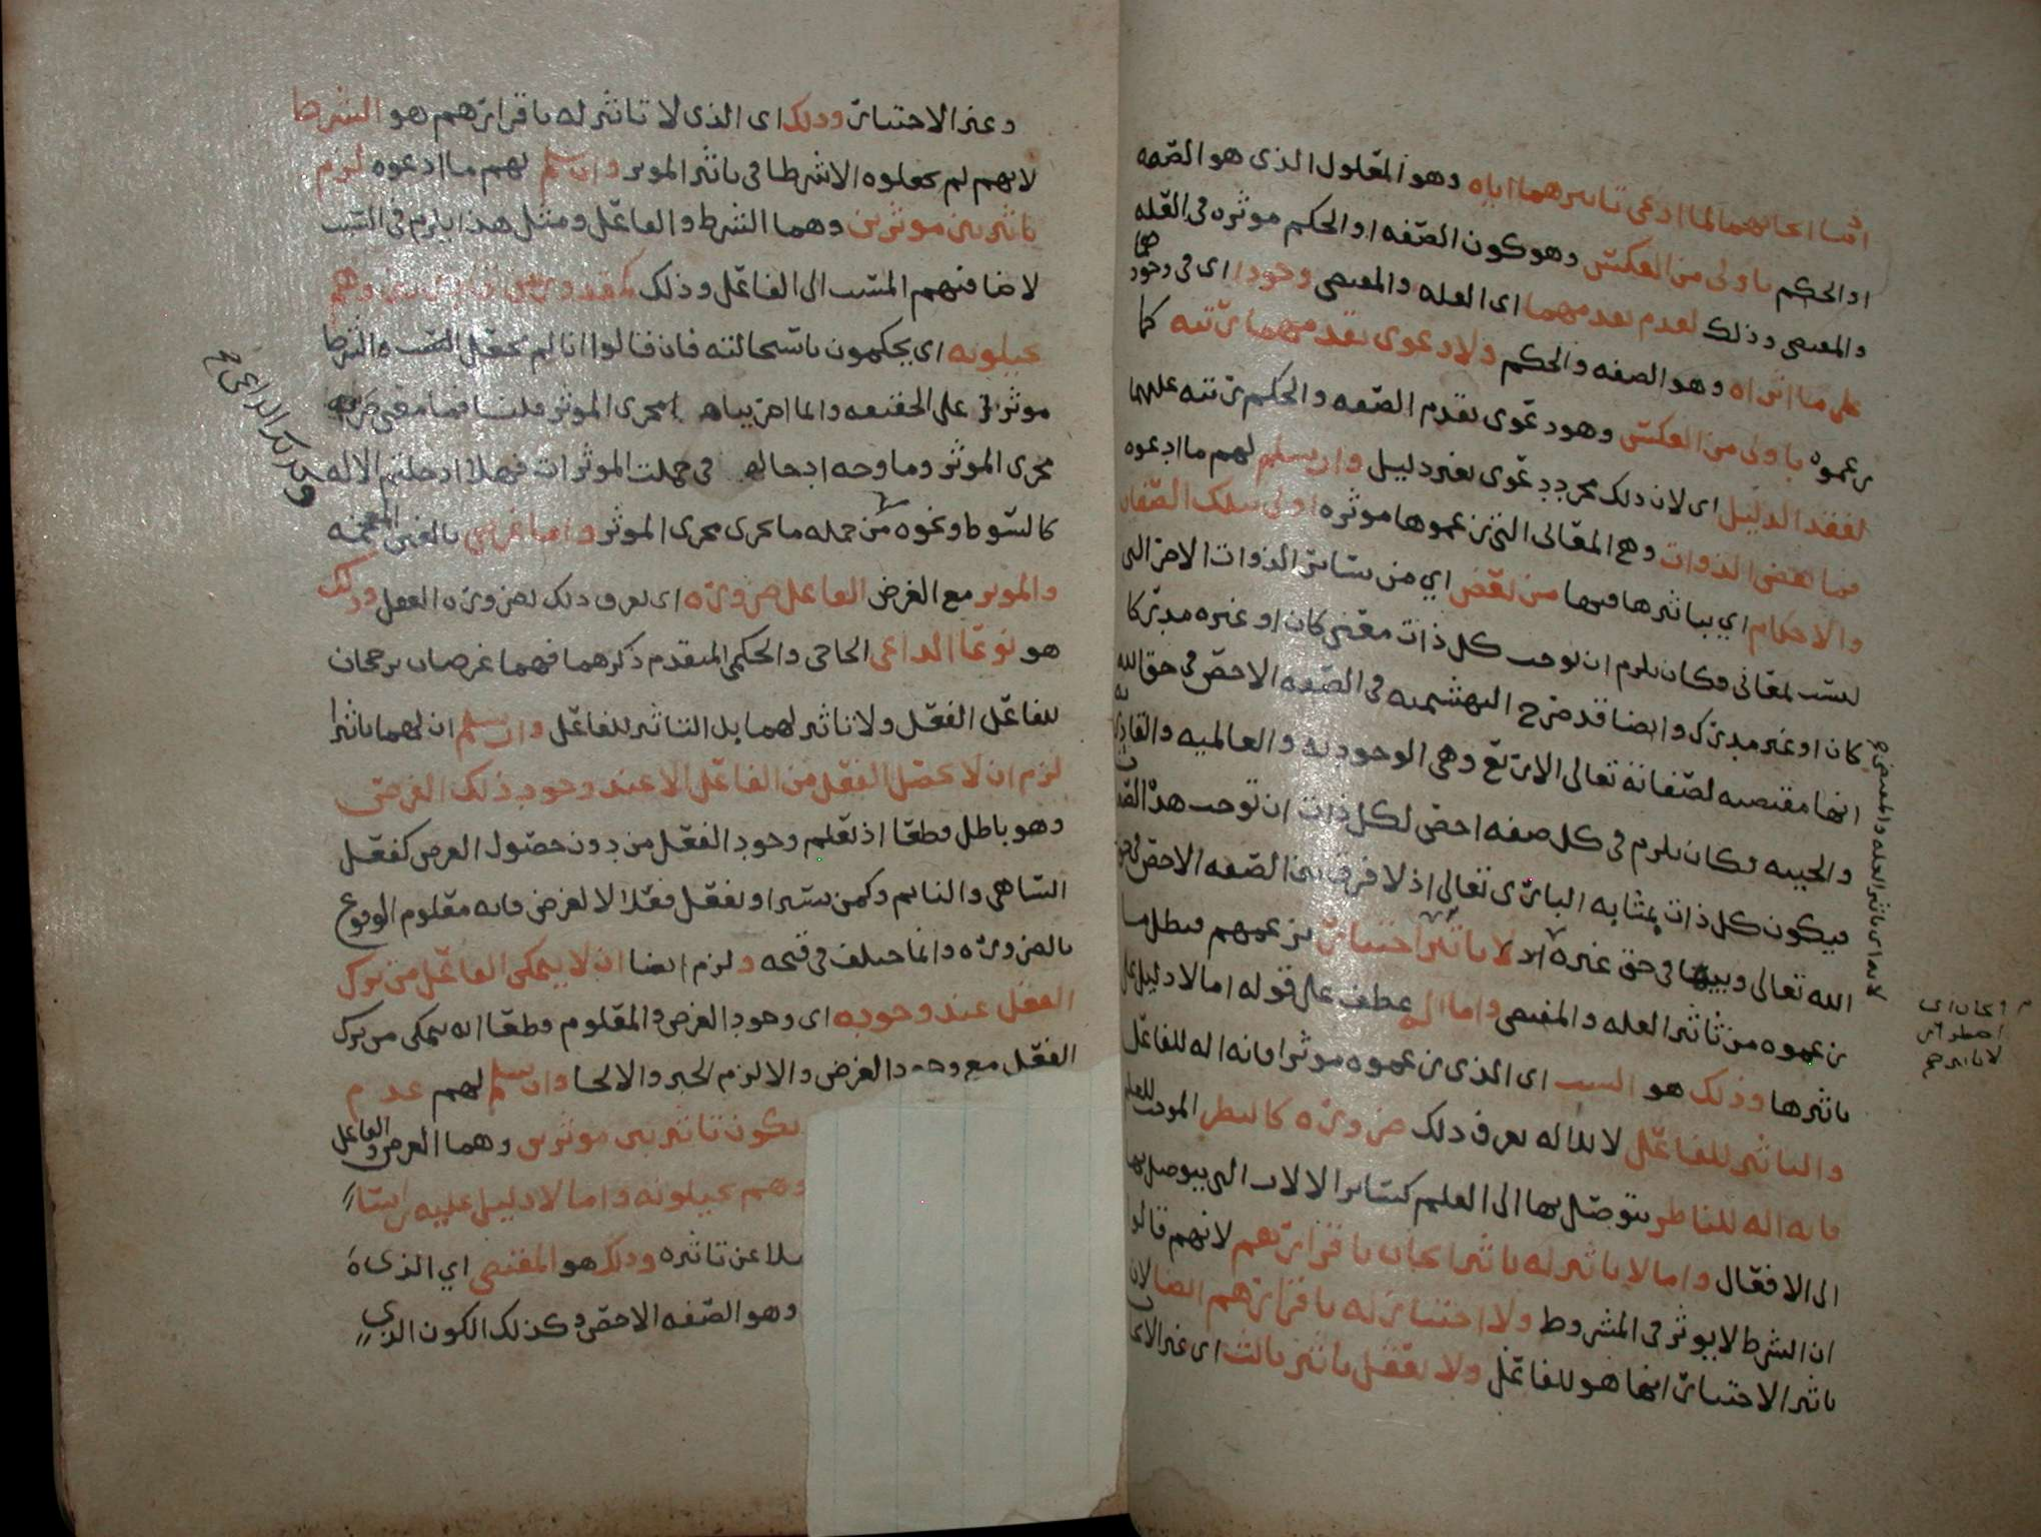 اثنيا ايجابهما لما ادعى تاثيرهما اياه وهو المعلول الذى هو الصفه
او الحكم باولى من العكس وهو كون الصفه او الحكم موثره فى العله
والمقتضى وذلك لعدم تقدمهما اى العله والمقتضى وجودا اى فى وجودهما
على ما اثراه وهو الصفه والحكم ولا دعوى تقدمهما رتبه كما
زعموه باولى من العكس وهو دعوى تقدم الصفه والحكم رتبه عليهما
لفقد الدليل اى لان ذلك مجرد دعوى بغير دليل وان سلم لهم ما ادعوه
فما بعض الذوات وهى المعانى التى زعموها موثره اولى بتلك الصفات
والاحكام اي بتاثيرها فيها من بعض اي من سائر الذوات الاخر التى
ليست بمعانى وكان يلزم ان توجب كل ذات معنى كان او غيره مدركا
كان او غير مدرك وايضا قد صرح البهشميه فى الصفه الاخص فى حق الله
انها مقتضيه لصفاته تعالى الاربع وهى الوجوديه والعالميه والقادريه
والحييه وكان يلزم فى كل صفه اخص لكل ذات ان توجب هذه
فيكون كل ذات بمثابه البارى تعالى اذ لا فرق بين الصفه الاخص فى حق
الله تعالى وبينها فى حق غيره اذ لا تاثير اختيار بزعمهم فبطل ما
زعموه من تاثير العله والمقتضى واما الـ عطف على قوله اما لا دليل على
تاثيرها وذلك هو السبب اى الذى زعموه موثرا فانه اله للفاعل
والتاثير للفاعل لا للاله يعرف ذلك ضروره كالنظر الموجب للعلم
فانه اله للناظر يتوصل بها الى العلم كسائر الالات التى يتوصل بها
الى الافعال واما لا تاثير له تاثير ايجاب باقرارهم لانهم قالوا
ان الشرط لا يوثر فى المشروط ولا اختيار له باقرارهم ايضا لان
تاثير الاختيار انما هو للفاعل ولا يعقل تاثير ثالث اى غير الايجاب
وغير الاختيار وذلك اى الذى لا تاثير له باقرارهم هو الشرط
لانهم لم يجعلوه الا شرطا فى تاثير الموثر وان سلم لهم ما ادعوه لزم
تاثير بين موثرين وهما الشرط والفاعل ومثل هذا يلزم فى السبب
لاضافتهم المسبب الى الفاعل وذلك كمقدور بين قادرين وهم
يحيلونه اى يحكمون باستحالته فان قالوا انا لم نجعل السبب والشرط
موثرين على الحقيقه وانما اجريناهما مجرى الموثر قلنا فما معنى
مجرى الموثر وما وجه ادخاله فى جملت الموثرات فهلا ادخلتم الاله
كالسوط ونحوه من جمله ما يجرى مجرى الموثر واما غرض بالغين المعجمه
والموثر مع الغرض الفاعل ضروره اى يعرف ذلك بضروره العقل وذلك
هو نوعا الداعى الحاجى والحكمى المتقدم ذكرهما فهما غرضان يرجحان
للفاعل الفعل ولا تاثير لهما بل التاثير للفاعل وان سلم ان لهما تاثيرا
لزم ان لا يحصل الفعل من الفاعل الا عند وجود ذلك الغرض
وهو باطل قطعا اذ نعلم وجود الفعل من دون حصول الغرض كفعل
الساهى والنايم وكمن يسير او يفعل فعلا لا لغرض فانه معلوم الوقوع
بالضروره وانما اختلف فى قبحه ولزم ايضا ان لا يتمكن الفاعل من ترك
الفعل عند وجوده اى وجود الغرض والمعلوم قطعا انه يتمكن من ترك
الفعل مع وجود الغرض والا لزم الجبر والالجا وان سلم لهم عدم
يكون تاثير بين موثرين وهما الغرض والفاعل
وهم يحيلونه واما لا دليل عليه راسا
فضلا عن تاثيره وذلك هو المقتضى اي الذى
وهو الصفه الاخص وكذلك الكون الذي